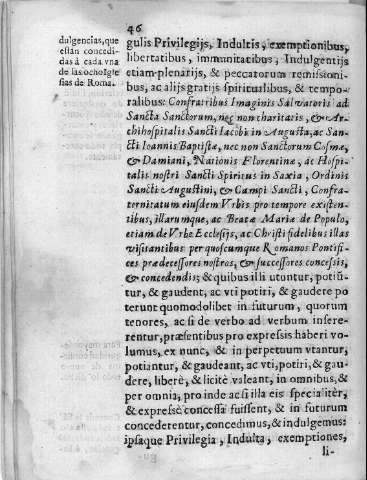 46
dulgencias, que
están concedi-
das à cada vna
de las ocho Igle
sias de Roma.
gulis Privilegijs, Indultis, exemptionibus,
libertatibus, immunitatibus, Indulgentijs
etiam plenarijs, & peccatorum remissioni-
bus, ac alijs gratijs spiritualibus, & tempo-
ralibus: Confratribus Imaginis Salvatoris ad
Sancta Sanctorum, nec non charitatis, & Ar-
chihospitalis Sancti Iacobi in Augusta, ac San-
cti Ioannis Baptistæ, nec non Sanctorum Cosmæ,
& Damiani, Nationis Florentinæ, ac Hospi-
talis nostri Sancti Spiritus in Saxia, Ordinis
Sancti Augustini, & Campi Sancti, Confra-
ternitatum eiusdem Vrbis pro tempore existen-
tibus, illarumque, ac Beatæ Mariæ de Populo,
etiam de Vrbe Ecclesijs, ac Christi fidelibus illas
visitantibus per quoscumque Romanos Pontifi-
ces prædecessores nostros, & successores concessis,
& concedendis; & quibus illi utuntur, potiũ-
tur, & gaudent, ac vti potiri, & gaudere po
terunt quomodolibet in futurum, quorum
tenores, ac si de verbo ad verbum insere-
rentur, præsentibus pro expressis haberi vo-
lumus, ex nunc, & in perpetuum vtantur,
potiantur, & gaudeant, ac vti, potiri, & gau-
dere, liberè, & licitè valeant, in omnibus, &
per omnia, pro inde ac si illa eis specialitèr,
& expressè concessa fuissent, & in futurum
concederentur, concedimus, & indulgemus:
ipsaque Privilegia, Indulta, exemptiones,
li-